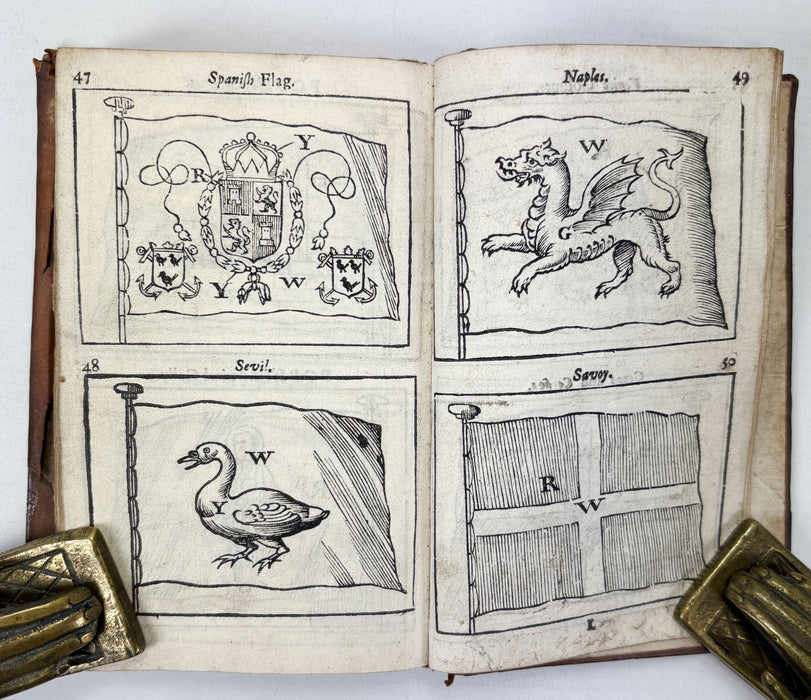 47 Spaniſh Flag.
Y
R
Y W
48 Sevil.
W
Y
Naples. 49
W
G
Savoy. 50
R
W